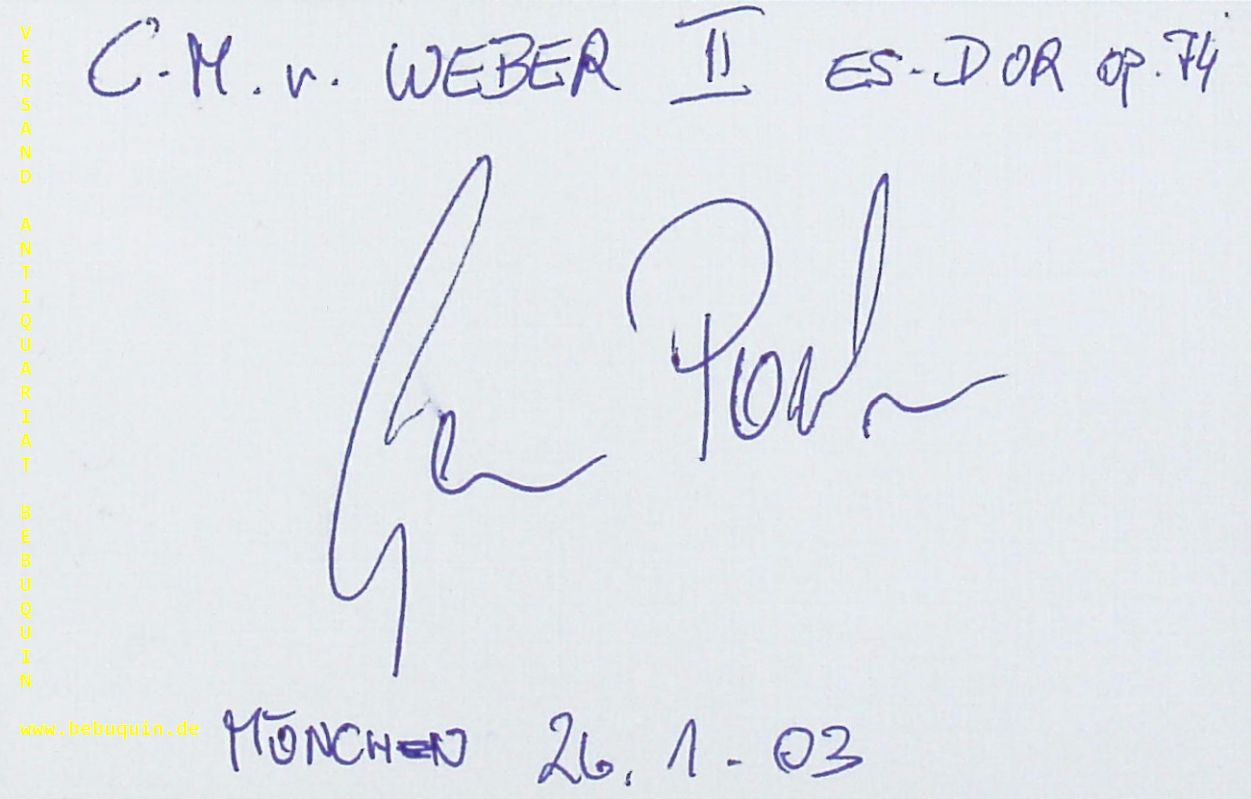 C.M.v. WEBER II ES-DUR op. 74
MÜNCHEN 26.1.03
VERSAND ANTIQUARIAT BEBUQUIN
www.bebuquin.de